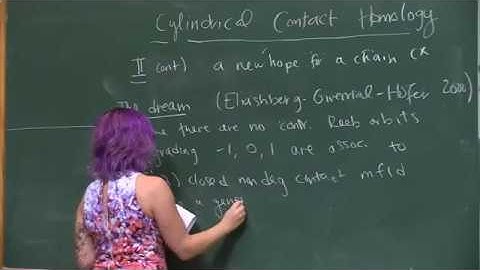 Cylindrical Contact Homology
II (cont) a new hope for a chain cx
The dream (Eliashberg-Givental-Hofer 2000)
there are no contr. Reeb orbits
grading -1, 0, 1 are assoc. to
) closed nondeg contact mfld